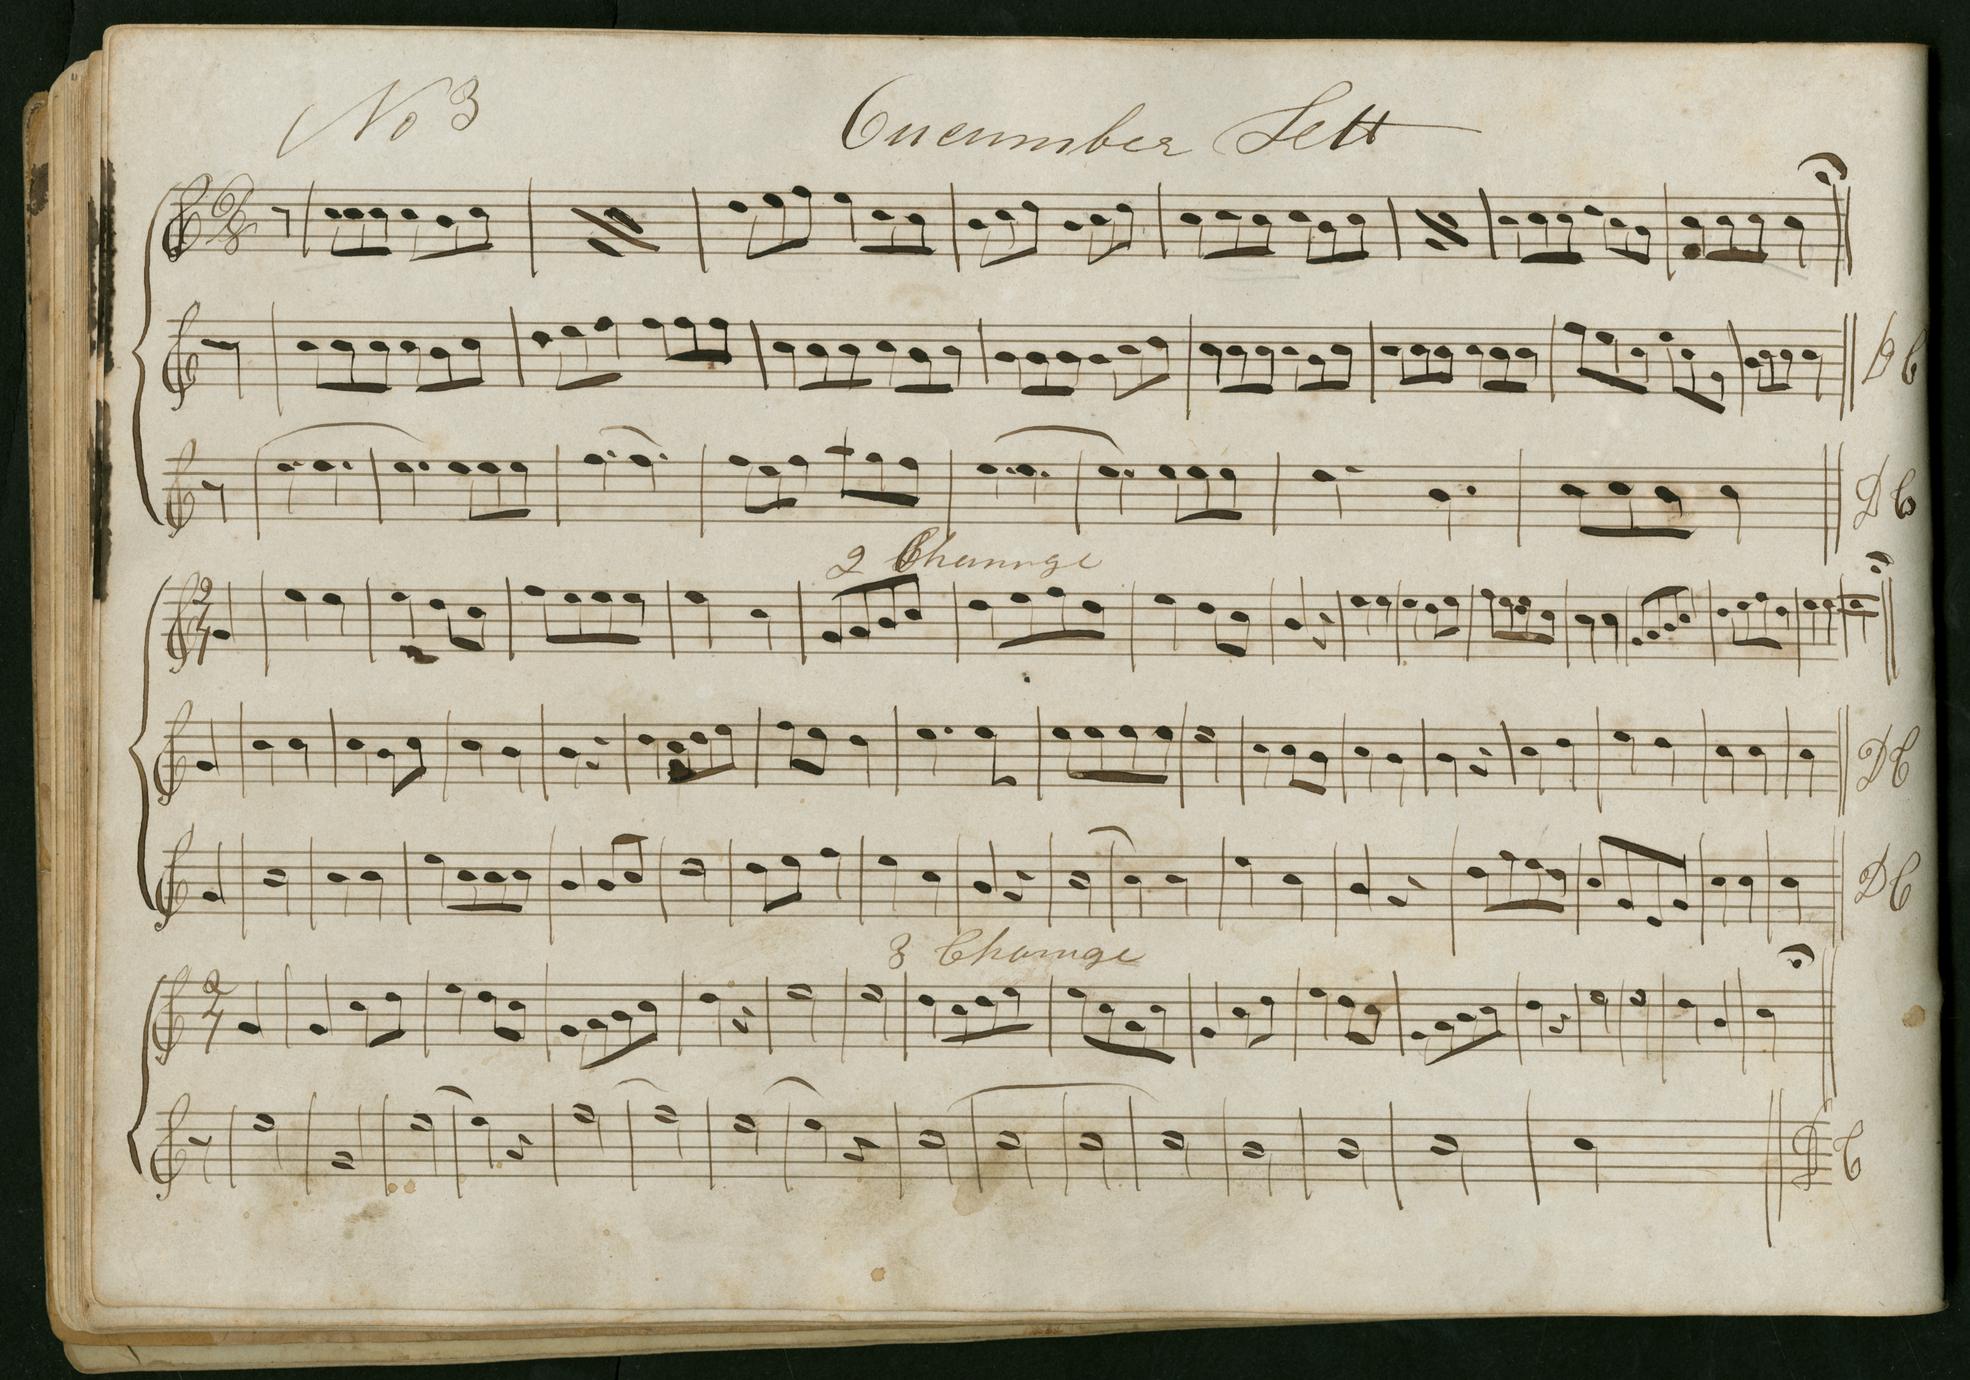 No 3 Cucumber Sett
D C
D C
2 Channge
D C
D C
3 Change
D C